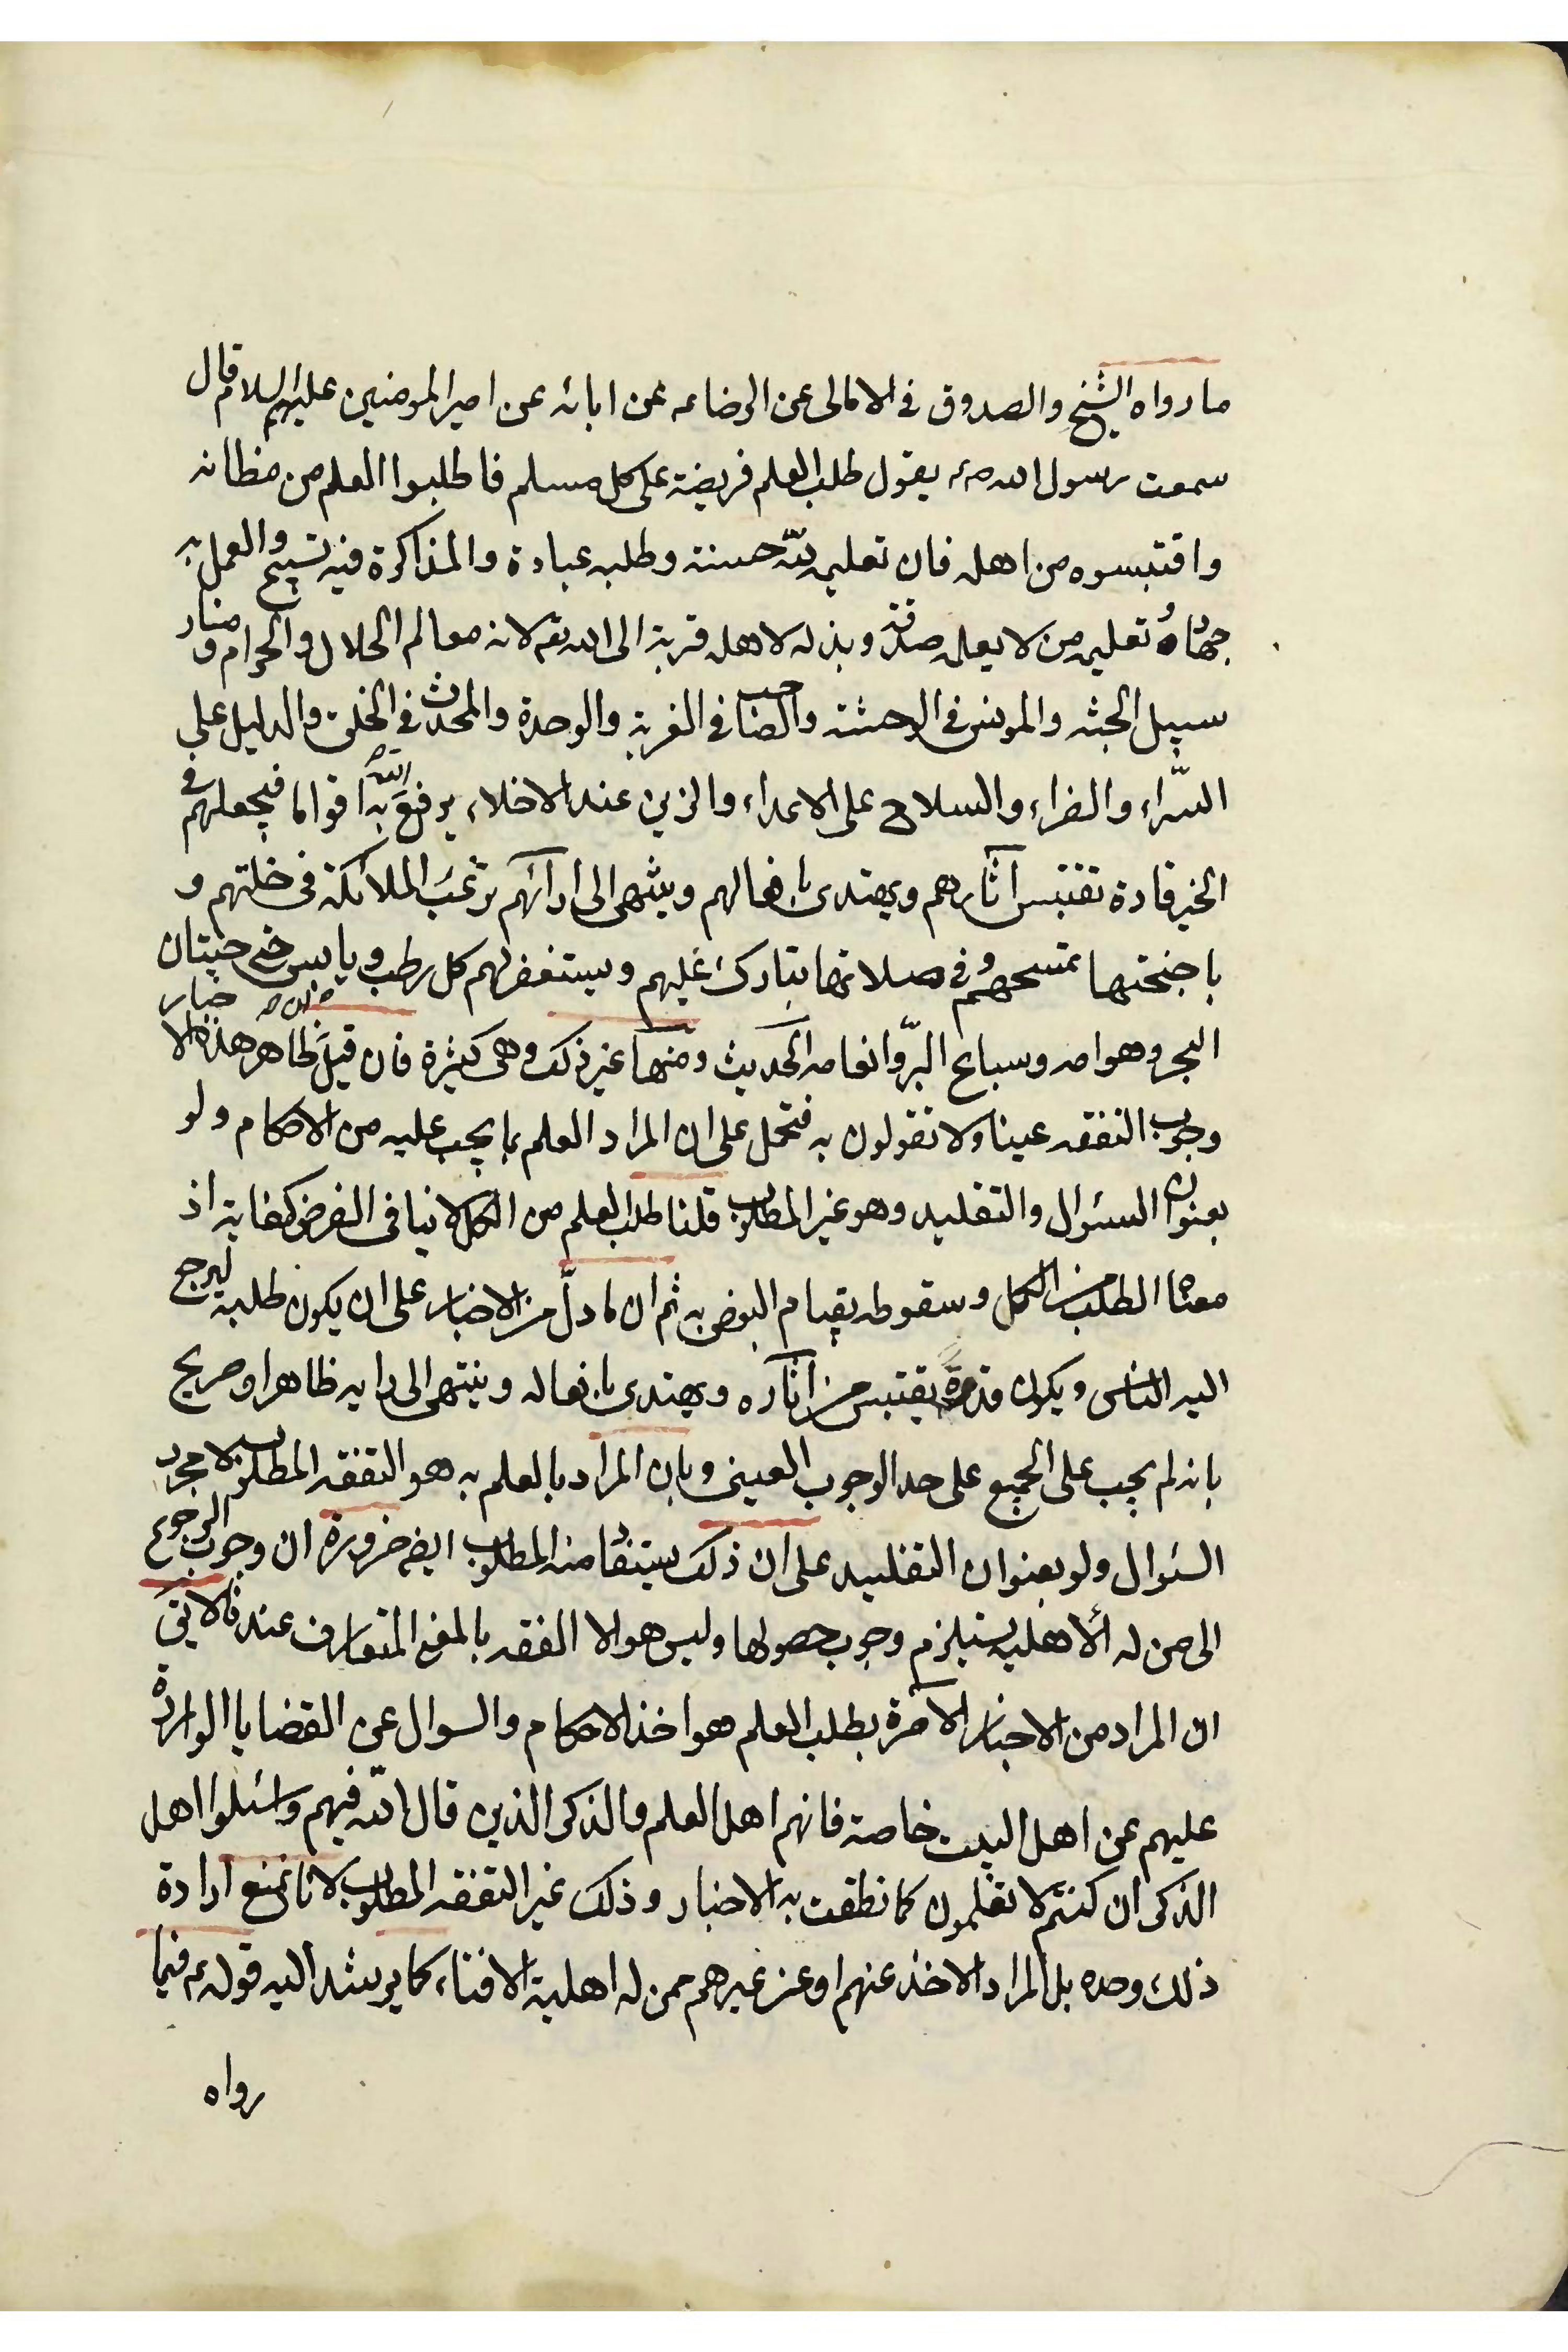 ما رواه الشيخ والصدوق في الامالى عن الرضا عه عن ابائه عن امير المومنين عليهم السلام قال
سمعت رسول الله صم يقول طلب العلم فريضة على كل مسلم فاطلبوا العلم من مظانه
واقتبسوه من اهله فان تعليمه لله حسنة وطلبه عبادة والمذاكرة فيه تسبيح والعمل به
جهاد وتعليمه من لا يعلمه صدقة وبذله لاهله قربة الى الله تع لانه معالم الحلال والحرام ومنار
سبيل الجنه والمونس في الوحشة والصاحب في الغربة والوحدة والمحدث في الخلوة والدليل على
السّراء والضراء والسلاح على الاعداء والزين عند الاخلاء يرفع الله به اقواما فيجعلهم في
الخير قادة تقتبس آثارهم ويهتدى بافعالهم وينتهى الى ارائهم ترغب الملائكة في خلتهم و
باجنحتها تمسحهم وفي صلاتها تبارك عليهم ويستغفر لهم كل رطب ويابس حتى حيتان
البحر وهوامه وسباع البرّ وانعامه الحديث ومنها غير ذلك وهى كثيرة فان قيل ظاهر هذه الاخبار
وجوب التفقه عينا ولا تقولون به فتحمل على ان المراد العلم بما يجب عليه من الاحكام ولو
بعنوان السئوال والتقليد وهو غير المطلوب قلنا طلب العلم من الكل لا ينافى الفرض كفاية اذ
معناه الطلب من الكل وسقوطه بقيام البعض به ثم ان ما دلّ من الاخبار على ان يكون طلبه ليرجع
اليه الناس ويكون قدوة يقتبس من آثاره ويهتدى بافعاله وينتهى الى رايه ظاهر او صريح
بانه لم يجب على الجميع على حد الوجوب العينى وبان المراد بالعلم به هو التفقه المطلوب لا مجرد
السئوال ولو بعنوان التقليد على ان ذلك يستفاد منه المطلوب ايضه ضرورة ان وجوب الرجوع
الى من له الاهلية يستلزم وجوب حصولها وليس هو الا الفقه بالمعنى المتعارف عندنا لا يق
ان المراد من الاخبار الآمرة بطلب العلم هو اخذ الاحكام والسوال عن القضايا الواردة
عليهم عن اهل البيت خاصة فانهم اهل العلم والذكر الذين قال الله فيهم واسئلوا اهل
الذكر ان كنتم لا تعلمون كما نطقت به الاخبار وذلك غير التفقه المطلوب لانا نمنع ارادة
ذلك وحده بل المراد الاخذ عنهم او عن غيرهم ممن له اهلية الافتاء كما يرشد اليه قوله عم فيما
رواه